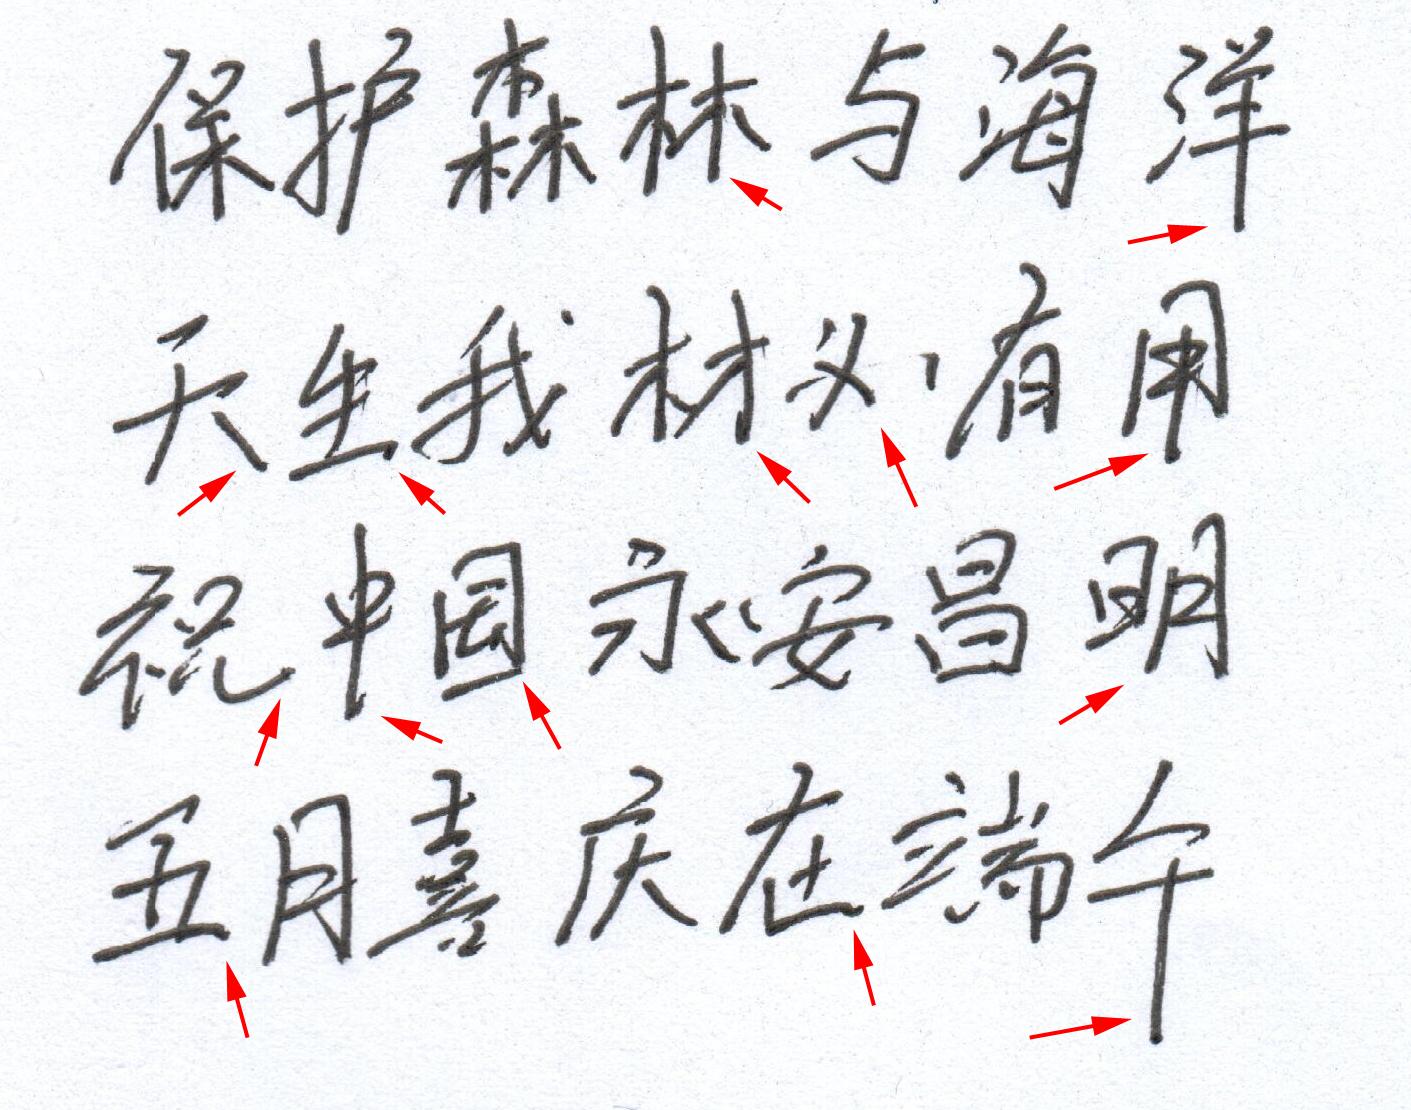 保护森林与海洋
天生我材必有用
祝中国永安昌明
五月喜庆在端午